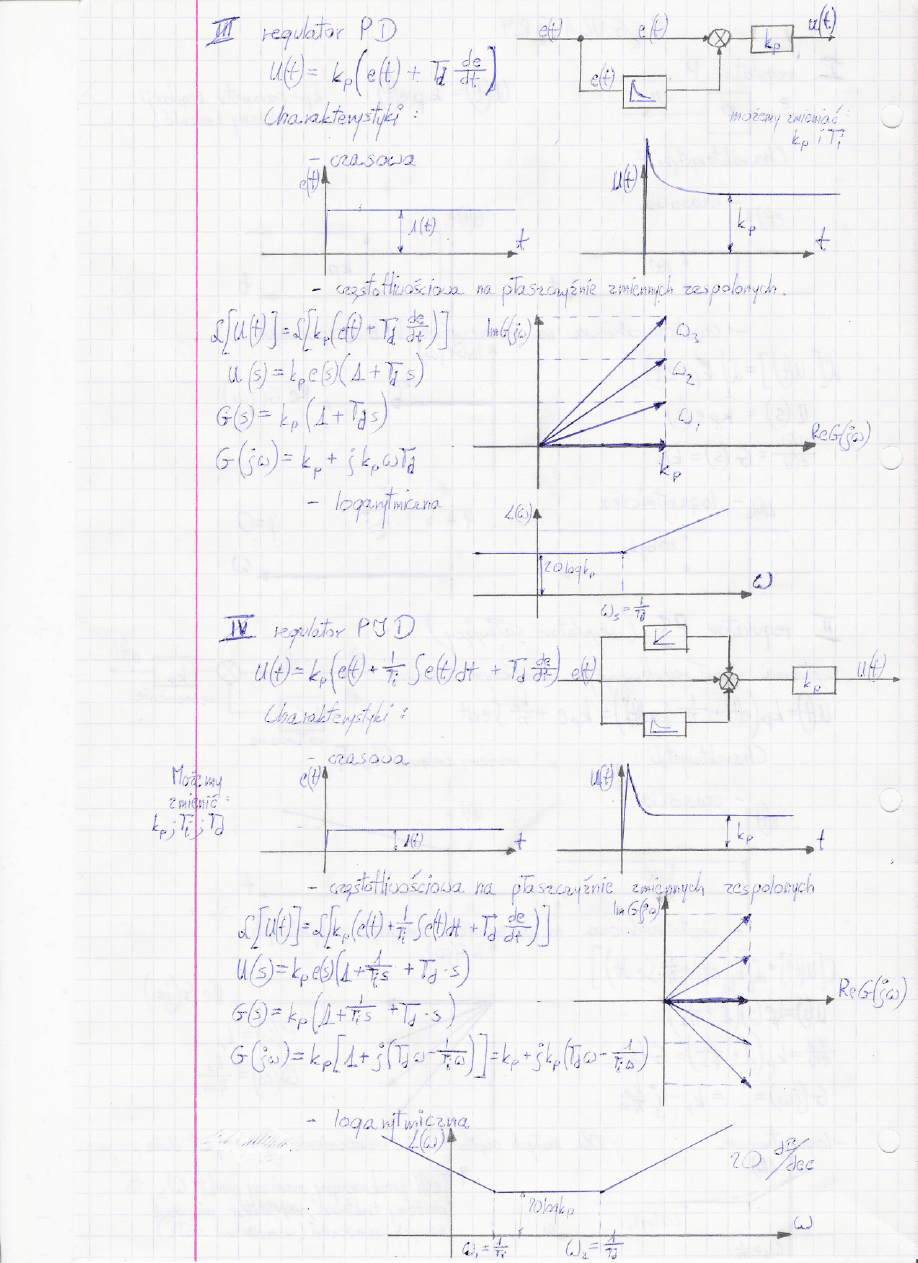 III regulator PD
e(t) e(t) u(t)
kp
U(t) = kp(e(t) + Td de/dt)
e(t)
Charakterystyki :
możemy zmieniać
kp i Ti
- czasowa
e(t) 1(t) t
U(t) kp t
- częstotliwościowa na płaszczyźnie zmiennych zespolonych.
ℒ[U(t)] = ℒ[kp(e(t) + Td de/dt)]
U(s) = kp e(s)(1 + Td s)
G(s) = kp(1 + Td s)
G(jω) = kp + j kp ω Td
ImG(jω) ω3
ω2
ω1
ReG(jω)
kp
- logarytmiczna
L(ω)
20logkp
ω
ωs = 1/Td
IV regulator PID
U(t) = kp(e(t) + 1/Ti ∫e(t)dt + Td de/dt)
e(t) kp U(t)
Charakterystyki :
- czasowa
Możemy
zmienić :
kp ; Ti ; Td
e(t) 1(t) t
U(t) kp t
- częstotliwościowa na płaszczyźnie zmiennych zespolonych
ℒ[U(t)] = ℒ[kp(e(t) + 1/Ti ∫e(t)dt + Td de/dt)]
U(s) = kp e(s)(1 + 1/Tis + Td · s)
G(s) = kp(1 + 1/Tis + Td · s)
G(jω) = kp[1 + j(Tdω - 1/Tiω)] = kp + jkp(Tdω - 1/Tiω)
ImG(jω)
ReG(jω)
- logarytmiczna
L(ω)
20 dB/dec
20logkp
ω
ω1 = 1/Ti ω2 = 1/Td